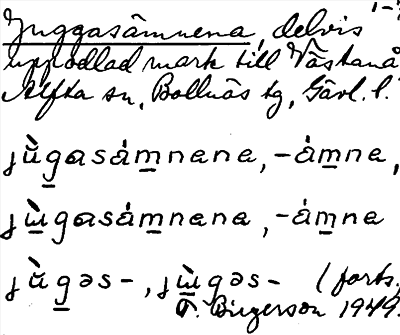 Juggasämnena, delvis
uppodlad mark till Västanå
Alfta sn, Bollnäs tg, Gävl. l.
jùg̲asám̲nena, -ám̲ne,
jùg̲asám̲nena, -ám̲ne
jùg̲əs-, jùg̲əs- (forts.
T. Birgerson 1949.